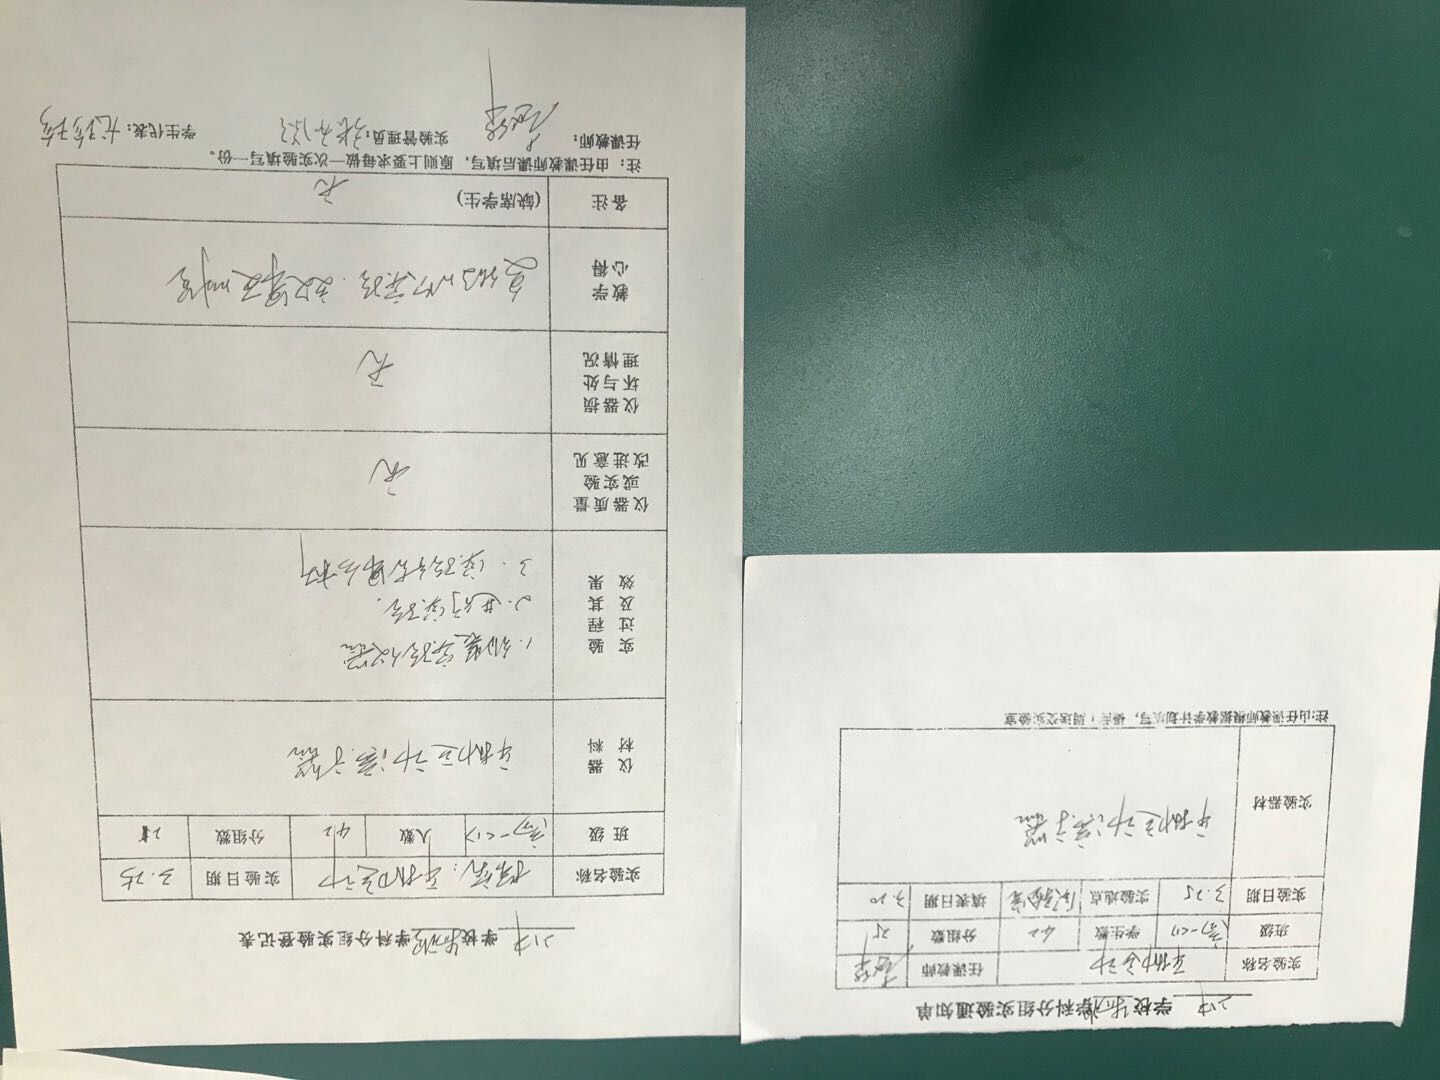 学校 学科分组实验登记表
实验名称 探究:平抛运动 实验日期 3.25
班级 高一<1> 人数 42 分组数
仪器材料 平抛运动演示器
实验过程及其效果
1.组装实验仪器
2.进行实验.
3.实验结果分析
仪器质量或实验改进意见 无
仪器损坏与处理情况 无
教学心得
备注 (缺席学生) 无
注:由任课教师课后填写,原则上要求每做一次实验填写一份。
任课教师: 实验管理员: 学生代表:
学校 学科分组实验通知单
实验名称 平抛运动 任课教师
班级 高一<1> 学生数 42 分组数
实验日期 3.25 实验地点 实验室 填表日期 3.20
实验器材 平抛运动演示器
注:由任课教师根据教学计划填写,提前1周送交实验室